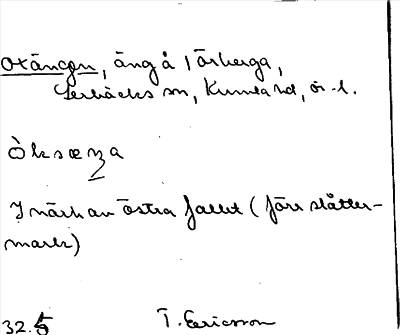 Oxängen, äng å Törberga,
Lerbäcks sn, Kumla hd, ö-l.
Òksæŋa
I närh av östra fallet (förr slåtter-
mark)
32.5 T. Ericsson